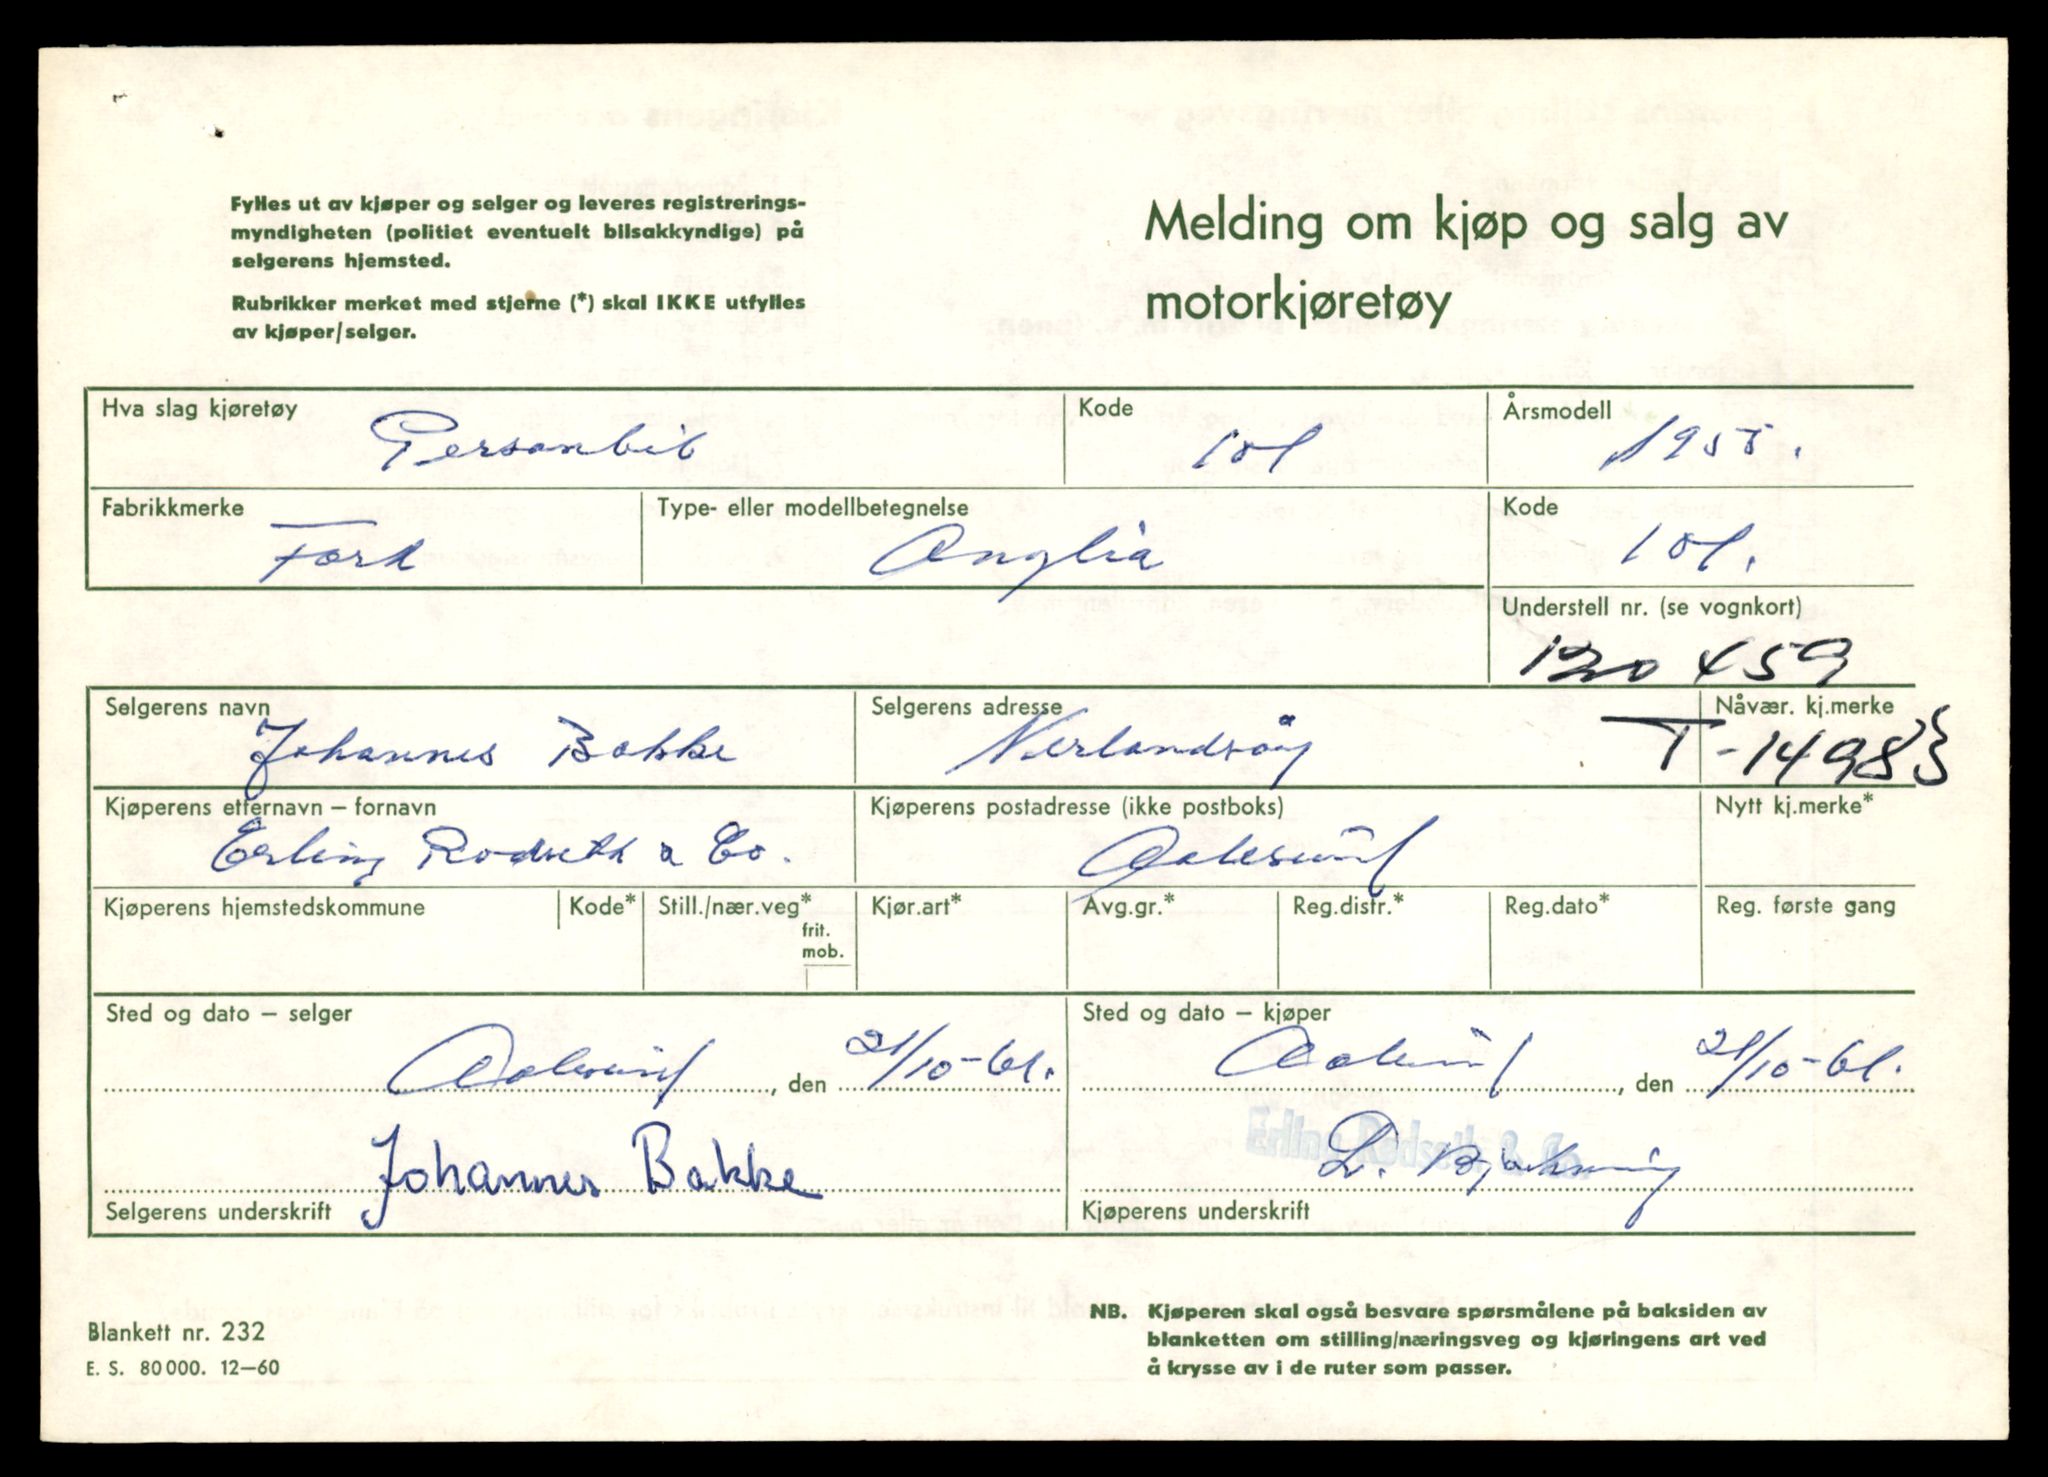 Fylles ut av kjøper og selger og leveres registrerings-
myndigheten (politiet eventuelt bilsakkyndige) på
selgerens hjemsted.
Rubrikker merket med stjerne (*) skal IKKE utfylles
av kjøper/selger.
Melding om kjøp og salg av
motorkjøretøy
Hva slag kjøretøy Personbil
Kode 101
Årsmodell 1955.
Fabrikkmerke Ford
Type- eller modellbetegnelse Anglia
Kode 101.
Understell nr. (se vognkort)
120459
Selgerens navn Johannes Bakke
Selgerens adresse Nerlandsøy
Nåvær. kj.merke T-14983
Kjøperens etternavn – fornavn
Erling & Co.
Kjøperens postadresse (ikke postboks)
Aalesund
Nytt kj.merke*
Kjøperens hjemstedskommune Kode* Still./nær.veg* frit. mob. Kjør.art* Avg.gr.* Reg.distr.* Reg.dato* Reg. første gang
Sted og dato – selger
Aalesund, den 21/10-61.
Sted og dato – kjøper
Aalesund, den 21/10-61.
Johannes Bakke
Selgerens underskrift
Kjøperens underskrift
Blankett nr. 232
E. S. 80000. 12–60
NB. Kjøperen skal også besvare spørsmålene på baksiden av
blanketten om stilling/næringsveg og kjøringens art ved
å krysse av i de ruter som passer.